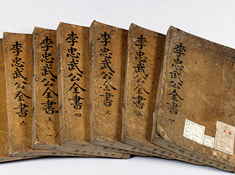 李忠武公全書
李忠武公全書
李忠武公全書 四
李忠武公全書
李忠武公全書
李忠武公全書